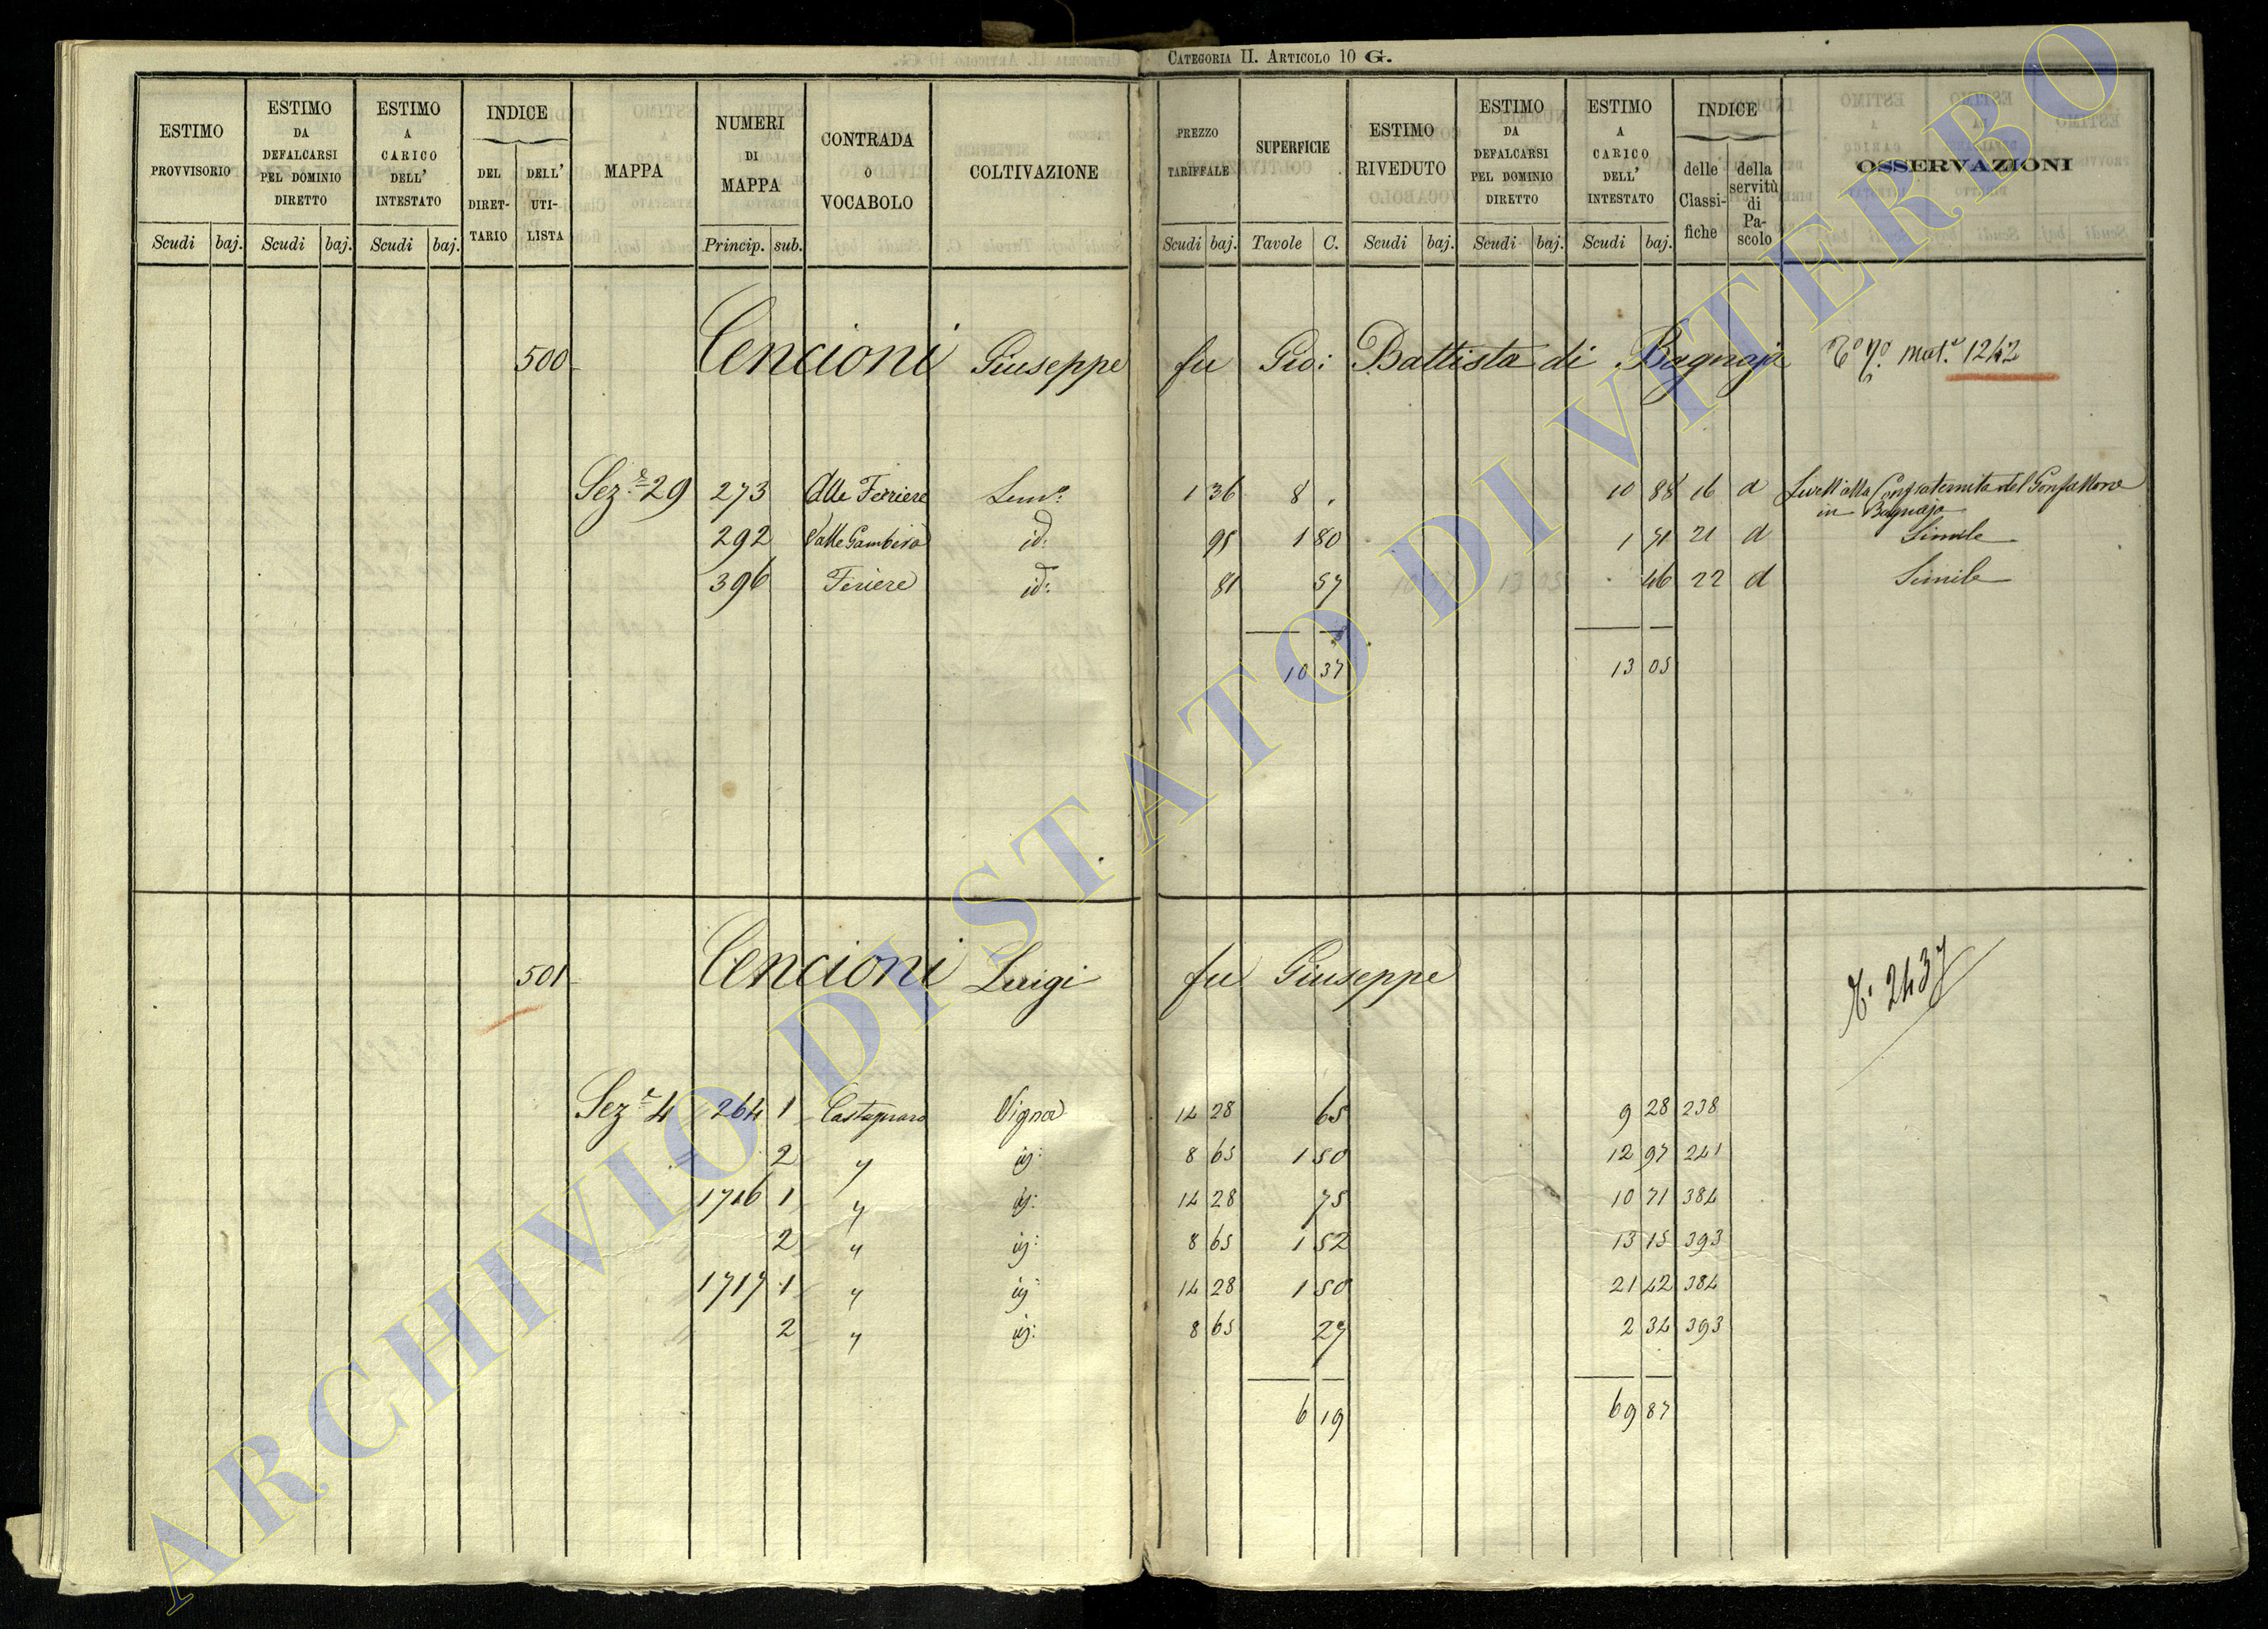 CATEGORIA II. ARTICOLO 10 G.
ESTIMO PROVVISORIO
ESTIMO DA DEFALCARSI PEL DOMINIO DIRETTO
ESTIMO A CARICO DELL' INTESTATO
INDICE
DEL DIRET-TARIO
DELL' UTI-LISTA
MAPPA
NUMERI DI MAPPA
CONTRADA O VOCABOLO
COLTIVAZIONE
PREZZO TARIFFALE
SUPERFICIE
ESTIMO RIVEDUTO
ESTIMO DA DEFALCARSI PEL DOMINIO DIRETTO
ESTIMO A CARICO DELL' INTESTATO
INDICE
delle Classi-fiche
della servitù di Pa-scolo
OSSERVAZIONI
Scudi baj. Scudi baj. Scudi baj. Princip. sub. Scudi baj. Tavole C. Scudi baj. Scudi baj. Scudi baj.
500 Cencioni Giuseppe fu Gio: Battista di Bagnaja mat. 1242
Sez.e 29 273 Alle Ferriere Sem.o 1 36 8 . 10 88 16 d Livell alla Confraternita del Gonfallone
in Bagnaja
292 Valle Gambera id: 95 1 80 1 71 21 d Simile
396 Feriere id: 81 57 46 22 d Simile
10 37 13 05
501 Cencioni Luigi fu Giuseppe 2437
Sez.e 4 264 1 Castagnaro Vigna 14 28 65 9 28 238
2 " id: 8 65 1 50 12 97 241
1716 1 " id: 14 28 75 10 71 384
2 " id: 8 65 1 52 13 15 393
1717 1 " id: 14 28 1 50 21 42 384
2 " id: 8 65 27 2 34 393
6 19 69 87
ARCHIVIO DI STATO DI VITERBO